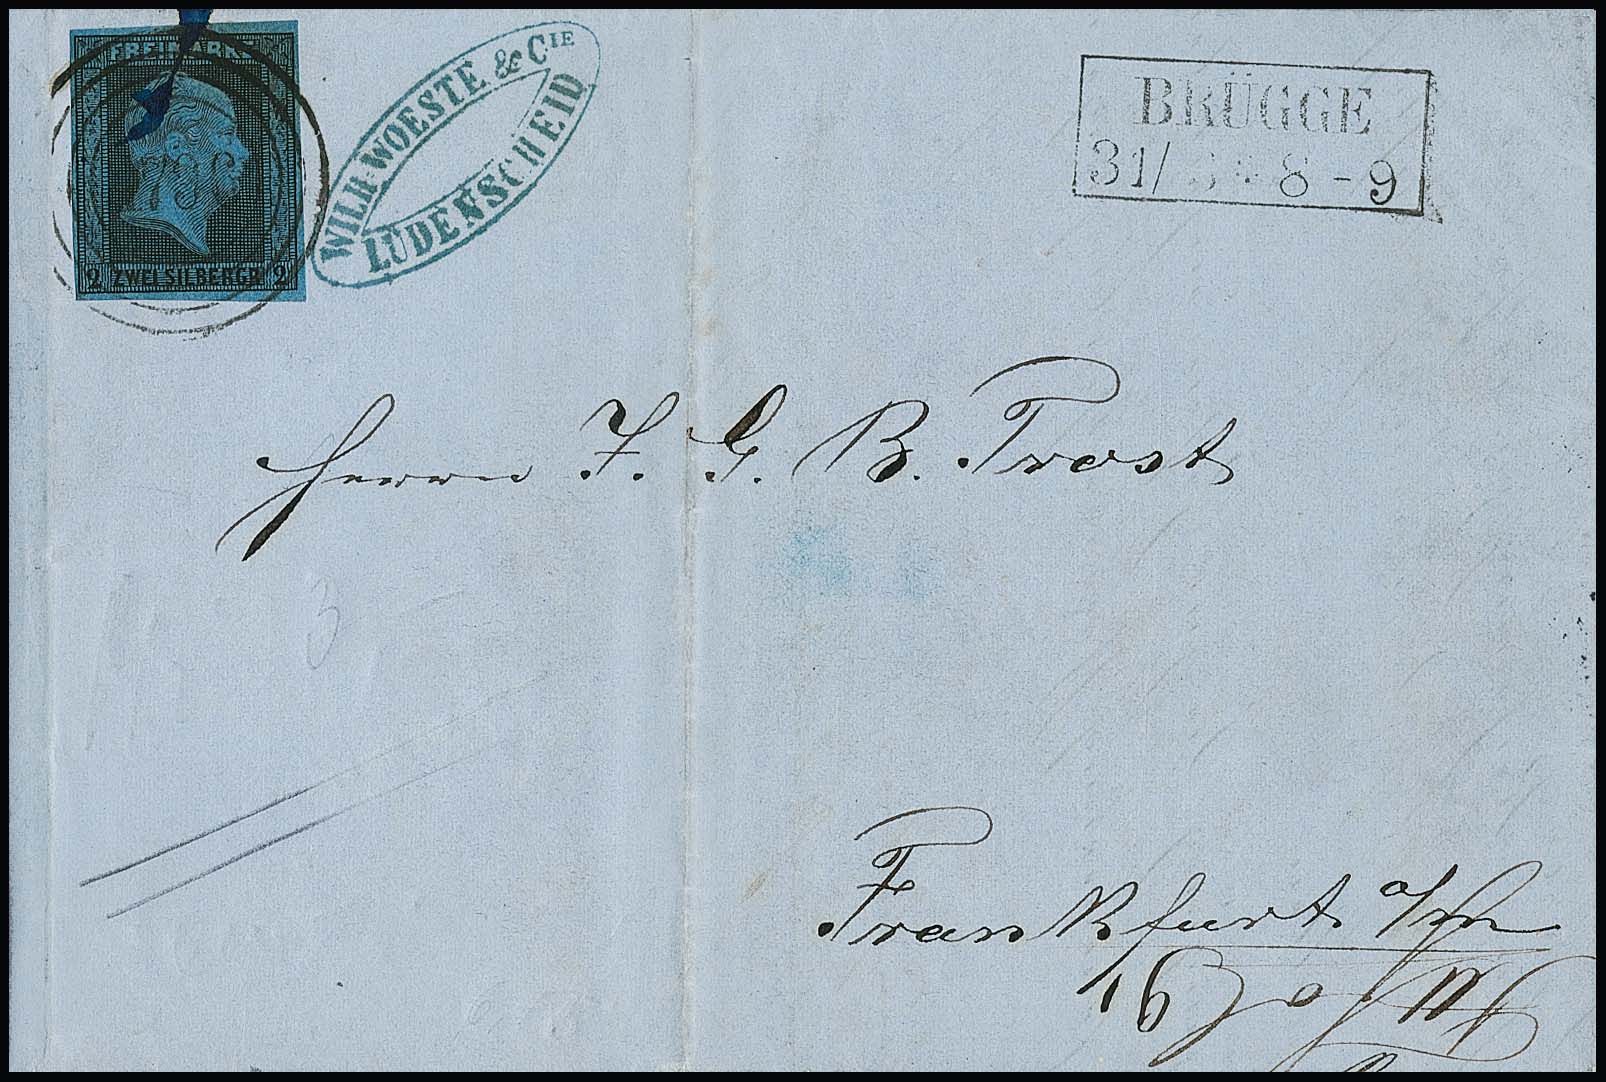 FREIMARKE
2 ZWEI SILBERGR. 2
WILH. WOESTE & CIE
LÜDENSCHEID
BRÜGGE
31/ 8 - 9
Herrn J. G. B. Trost
3
Frankfurt a/m
16